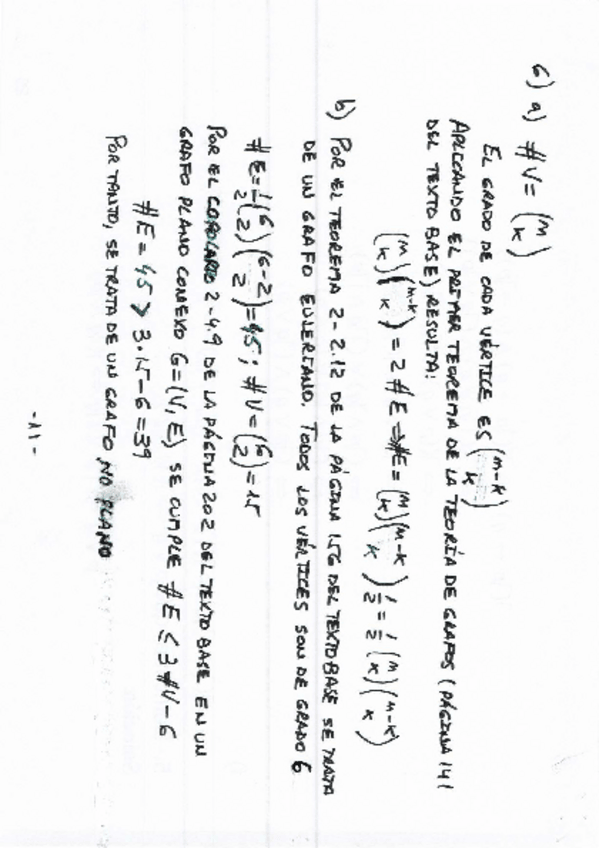 6) a) #V = (m k)
EL GRADO DE CADA VÉRTICE ES (m-k k)
APLICANDO EL PRIMER TEOREMA DE LA TEORÍA DE GRAFOS (PÁGINA 141
DEL TEXTO BASE) RESULTA:
(m k)(m-k k) = 2 #E ⇒ #E = (m k)(m-k k) 1/2 = 1/2 (m k)(m-k k)
b) POR EL TEOREMA 2-2.12 DE LA PÁGINA 156 DEL TEXTO BASE SE TRATA
DE UN GRAFO EULERIANO. TODOS LOS VÉRTICES SON DE GRADO 6
#E = 1/2 (6 2)(6-2 2) = 45 ; #V = (6 2) = 15
POR EL COROLARIO 2-4.9 DE LA PÁGINA 202 DEL TEXTO BASE EN UN
GRAFO PLANO CONEXO G=(V,E) SE CUMPLE #E ≤ 3 #V - 6
#E = 45 > 3·15 - 6 = 39
POR TANTO, SE TRATA DE UN GRAFO NO PLANO
-11-